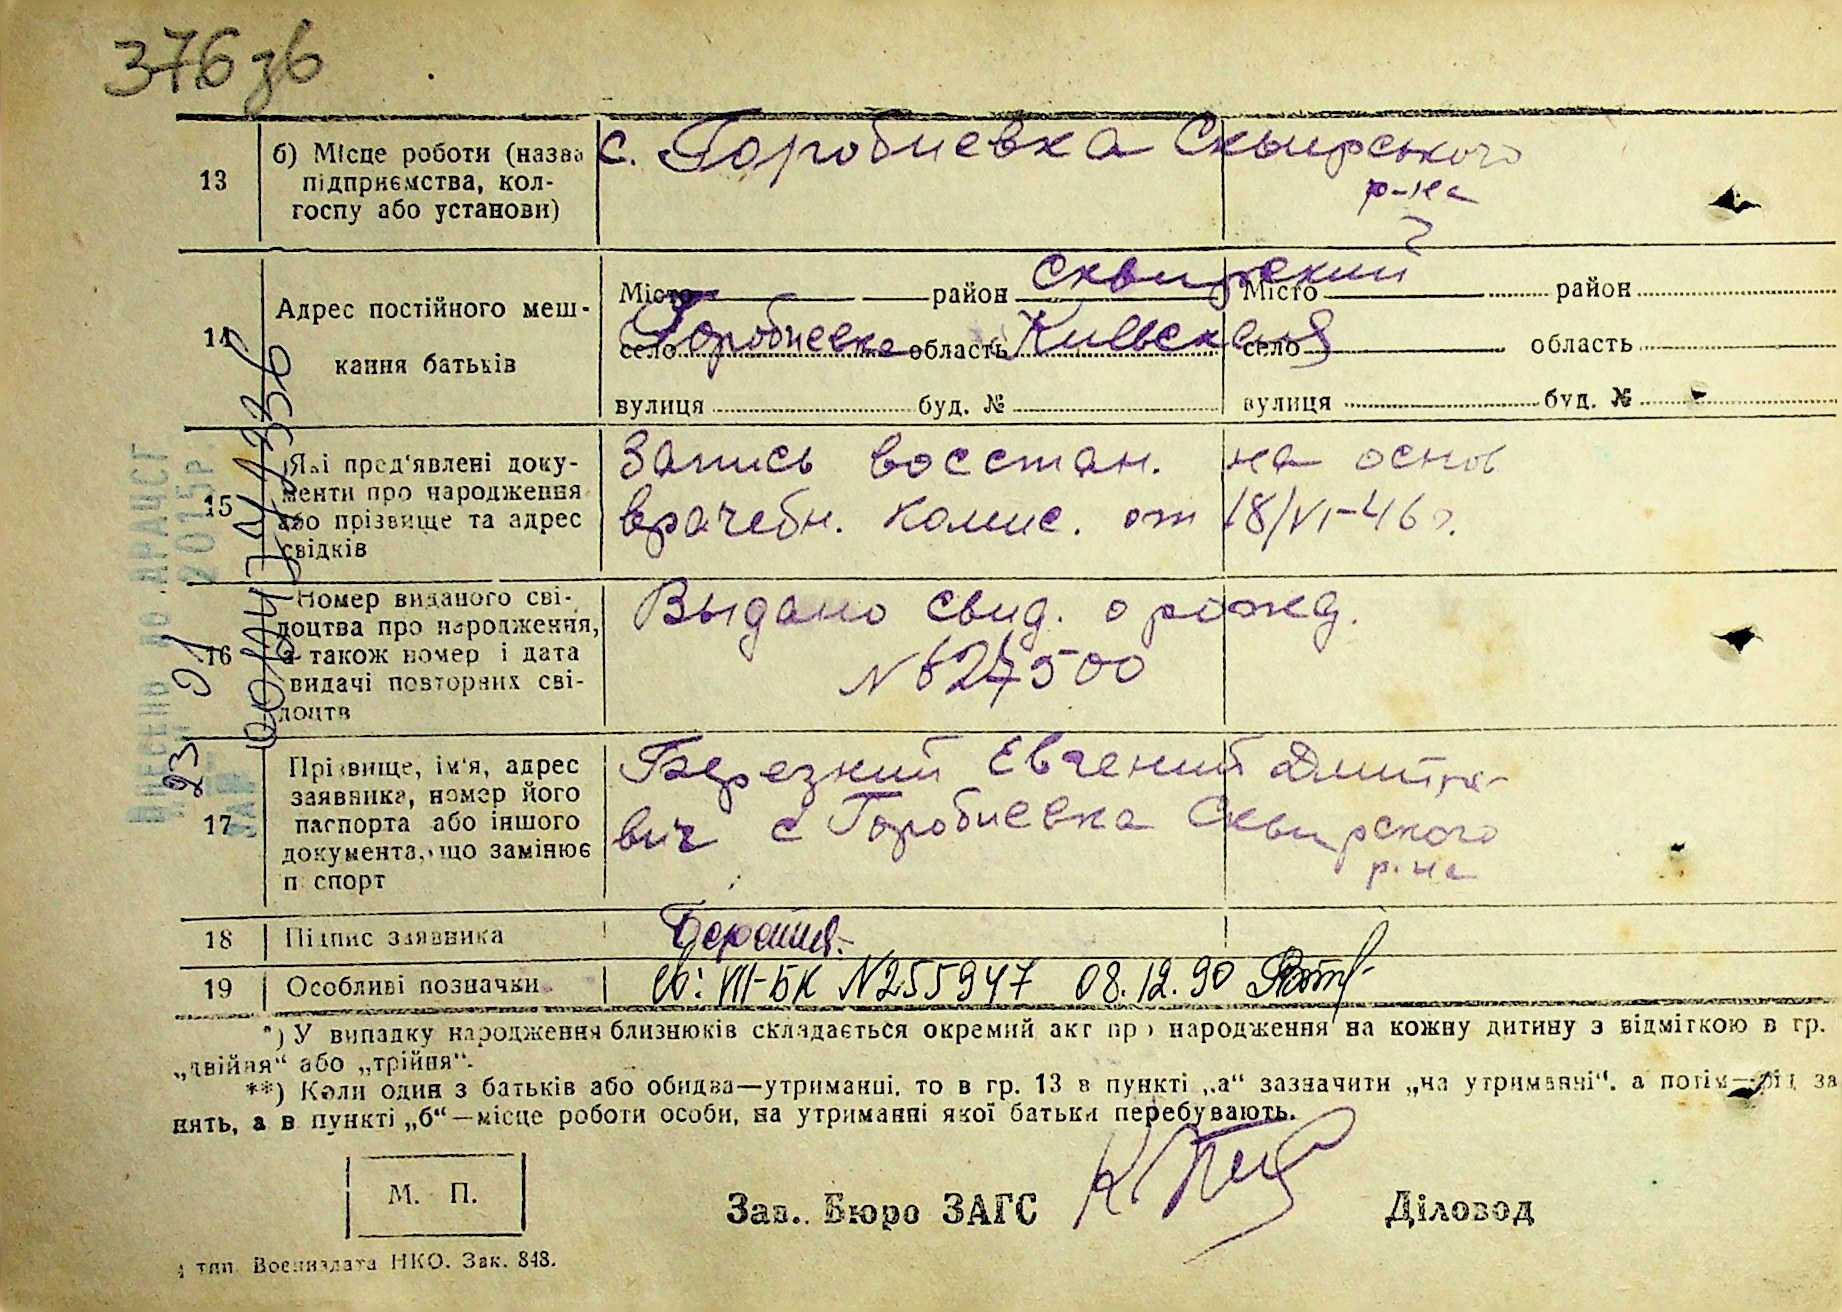 376 зв
13
б) Місце роботи (назва
підприємства, кол-
госпу або установи)
с. Горобиевка Сквирського
р-на
14
Адрес постійного меш-
кання батьків
Місто район Сквирский
село Горобиевка область Киевская
вулиця буд. №
Місто район
село область
вулиця буд. №
15
Які пред'явлені доку-
менти про народження
або прізвище та адрес
свідків
Запись восстан. на основ
врачебн. комис. от 18/VI-46 г.
16
Номер виданого сві-
доцтва про народження,
а також номер і дата
видачі повторних сві-
доцтв
Выдано свид. о рожд.
№ 627500
17
Прізвище, ім'я, адрес
заявника, номер його
паспорта або іншого
документа, що замінює
п спорт
Березкий Евгений Дмитро-
вич с Горобиевка Сквирского
р-на
18
Підпис заявника
19
Особливі позначки
св: VII-БК №255947 08.12.90
*) У випадку народження близнюків складається окремий акт про народження на кожну дитину з відміткою в гр.
„двійня“ або „трійня“.
**) Коли один з батьків або обидва—утриманці, то в гр. 13 в пункті „а“ зазначити „на утриманні“, а потім—рід за
нять, а в пункті „б“—місце роботи особи, на утриманні якої батьки перебувають.
М. П.
Зав. Бюро ЗАГС
Діловод
тип. Воениздата НКО. Зак. 848.